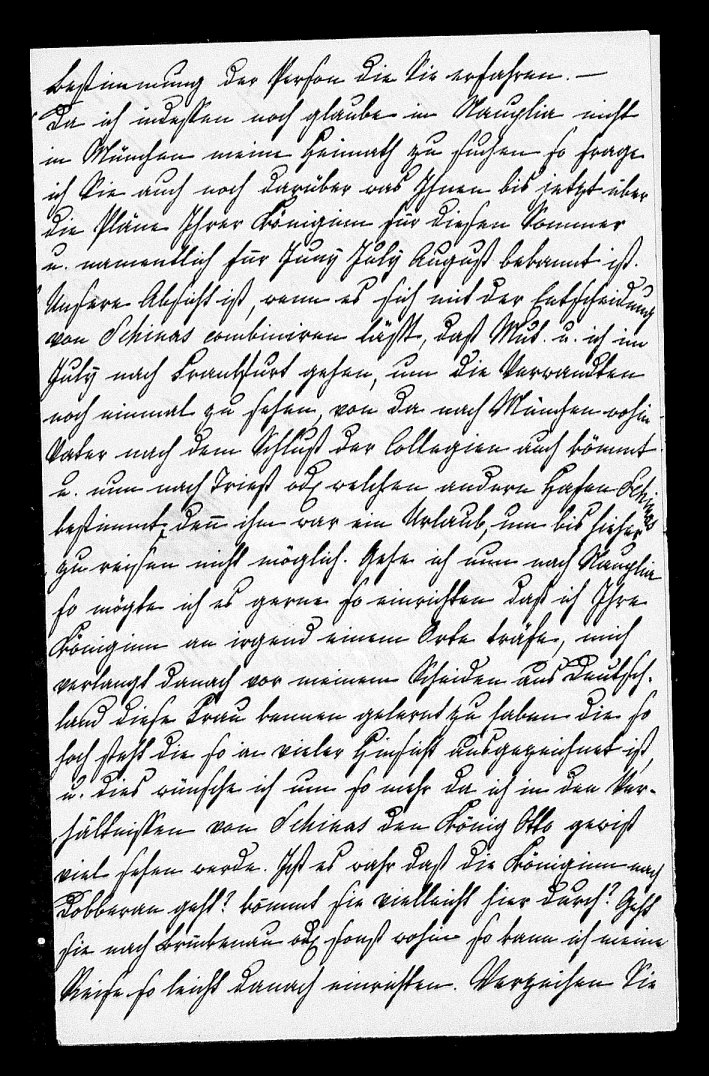 Bestimmung der Person die Sie erfahren. —
Da ich indessen noch glaube in Nauplia nicht
in München meine Heimath zu suchen so frage
ich Sie auch noch darüber was Ihnen bis jetzt über
die Pläne Ihrer Königinn für diesen Sommer
u. namentlich für Juny July August bekannt ist.
Unsere Absicht ist, wenn es sich mit der Entscheidung
von Schinas combiniren läßt, daß Mut. u. ich im
July nach Frankfurt gehen, um die Verwandten
noch einmal zu sehen, von da nach München wohin
Vater nach dem Schluß der Collegien auch kömmt
u. nun nach Triest od. welchen andern Hafen Schinas
bestimmt, den̄ ihm war ein Urlaub, um bis hieher
zu reisen nicht möglich. Gehe ich nun nach Nauplia
so mögte ich es gerne so einrichten daß ich Ihre
Königinn an irgend einem Orte träfe, mich
verlangt danach vor meinem Scheiden aus Deutsch-
land diese Frau kennen gelernt zu haben die so
hoch steht die so in vieler Hinsicht ausgezeichnet ist,
u. dies wünsche ich um so mehr da ich in den Ver-
hältnissen von Schinas den König Otto gewiß
viel sehen werde. Ist es wahr daß die Königinn nach
Dobberan geht? kömmt sie vielleicht hier durch? Geht
sie nach Brükenau od. sonst wohin so kann ich meine
Reise so leicht danach einrichten. Verzeihen Sie